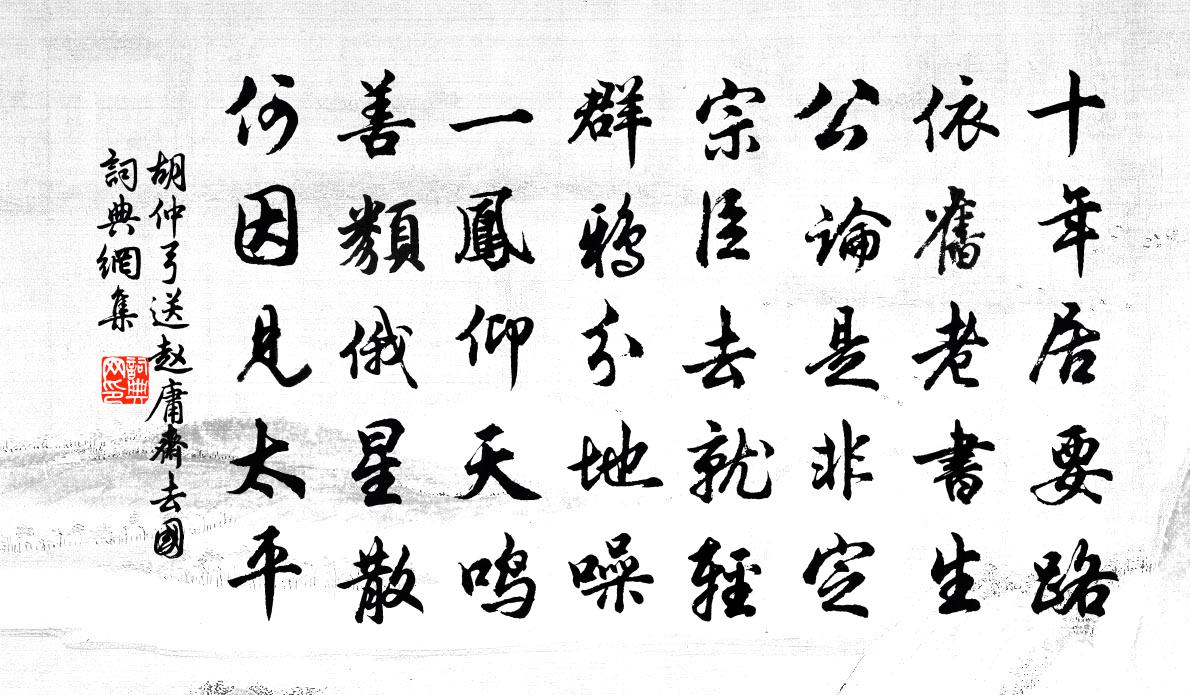 十年居要路
依舊老書生
公論是非定
宗臣去就輕
群鴉分地噪
一鳳仰天鳴
善類俄星散
何因見太平
胡仲弓送赵庸齋去國
詞典網集
詞典網印